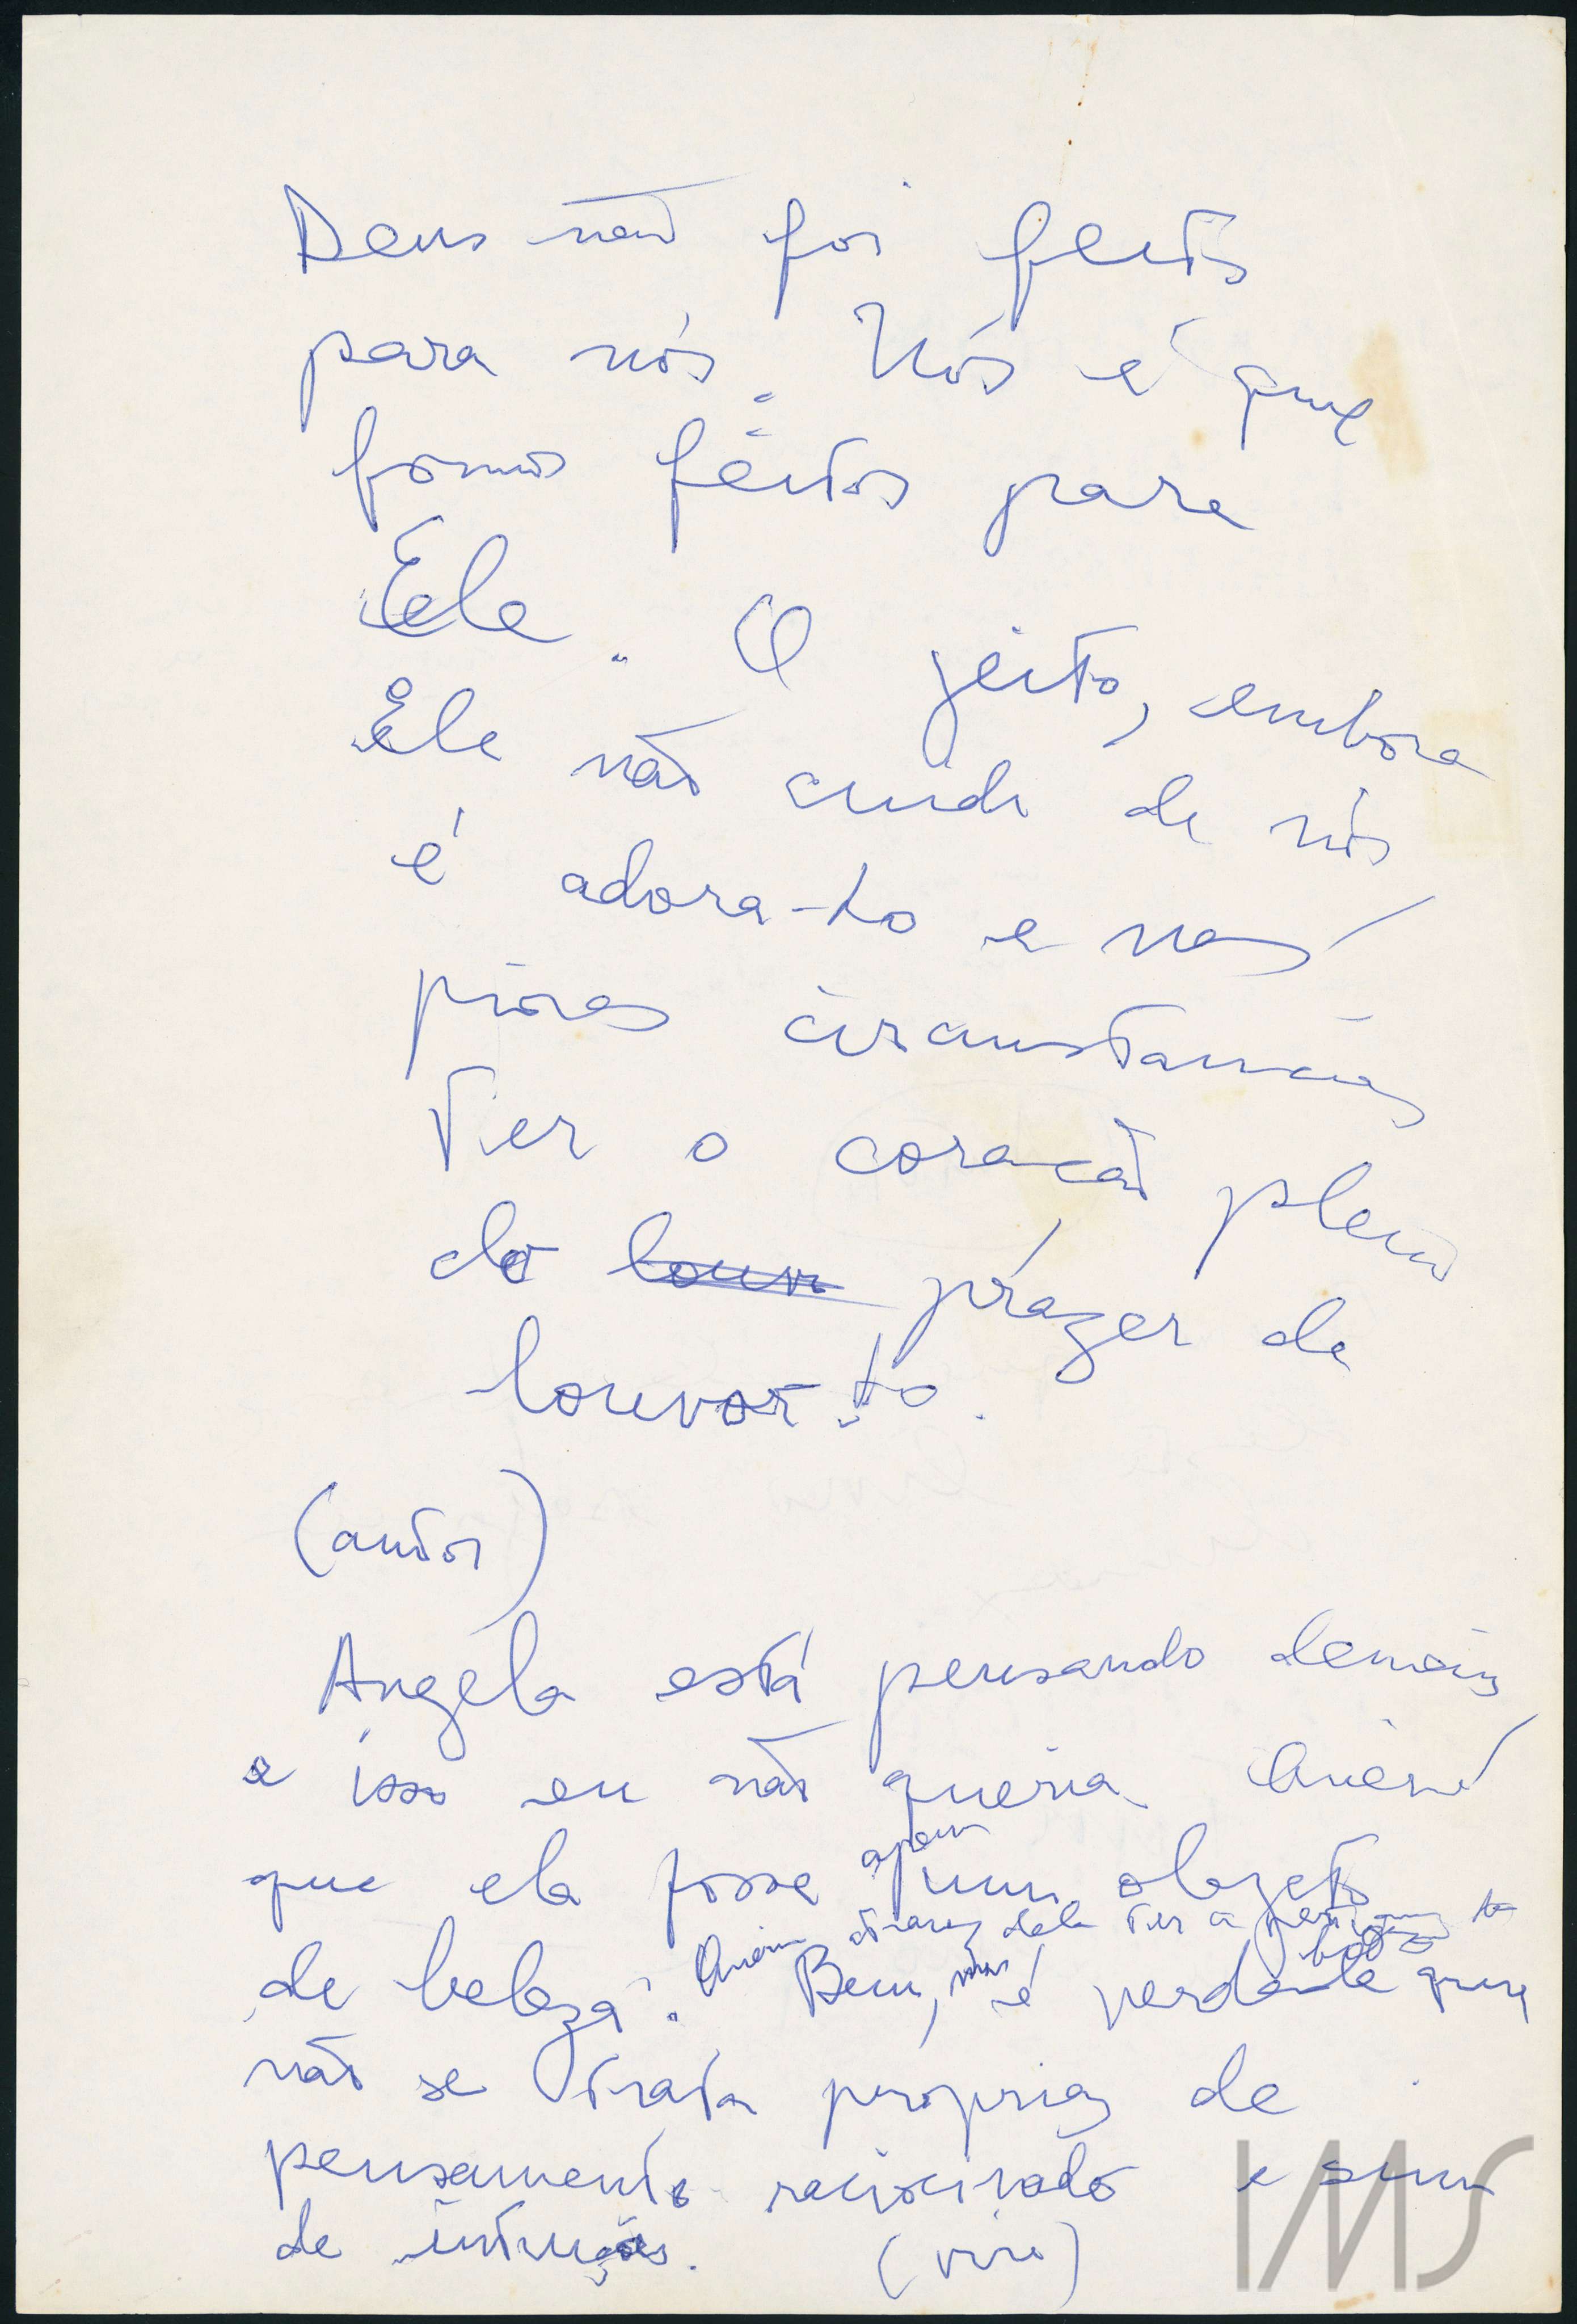 Deus não foi feito
para nós. Nós é que
fomos feitos para
Ele. O jeito, embora
Ele não cuide de nós
é adora-lo e nas
piores circunstancias
Ter o coração pleno
do louvor prazer de
louvar-lo.
(autor)
Angela está pensando demais
e isso eu não queria. Queria
que ela fosse apenas um objeto
de beleza. Queria através dela ter a
Bem, mas é verdade que
não se trata de
pensamento raciocinado e sim
de intuições. (viro)
IMS